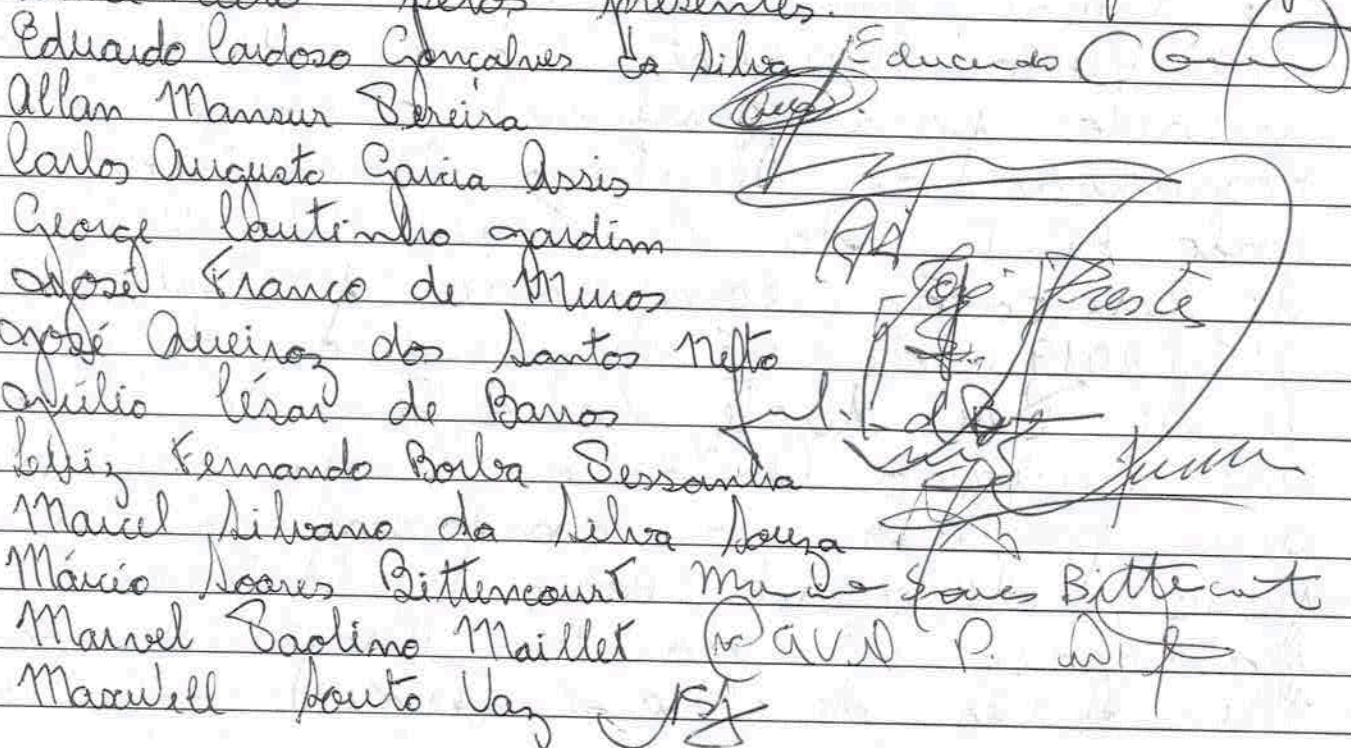 pelos presentes.
Eduardo Cardoso Gonçalves da Silva Eduardo C G
Allan Mansur Pereira
Carlos Augusto Garcia Assis
George Coutinho Jardim
José Franco de Muros José Preste
José Queiroz dos Santos Neto
Júlio César de Barros
Luiz Fernando Borba Pessanha
Marcel Silvano da Silva Souza
Márcio Soares Bittencourt Soares Bittecut
Marvel Paolino Maillet
Maxwell Souto Vaz